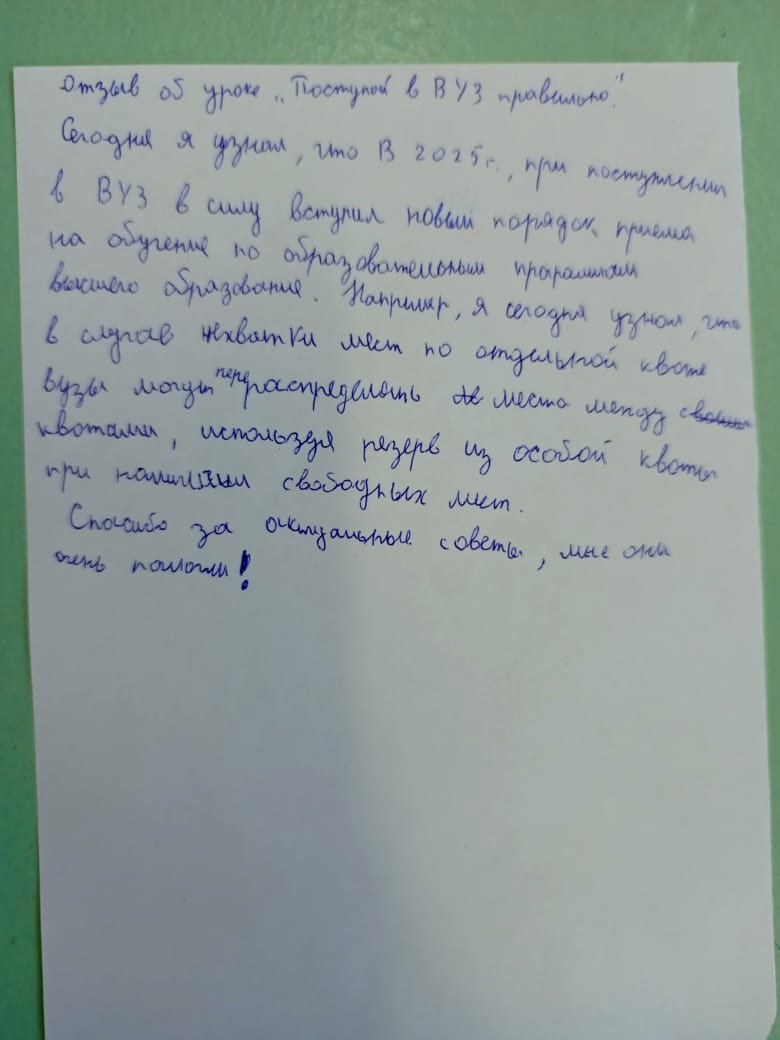 Отзыв об уроке „Поступай в ВУЗ правильно."
Сегодня я узнал, что в 2025г., при поступлении
в ВУЗ в силу вступил новый порядок приема
на обучение по образовательным програмам
высшего образования. Например, я сегодня узнал, что
в случае нехватки мест по отдельной квоте
вузы могут перераспределять места между
квотами, используя резерв из особой квоты
при наличии свободных мест.
Спасибо за актуальные советы, мне они
очень помогли!